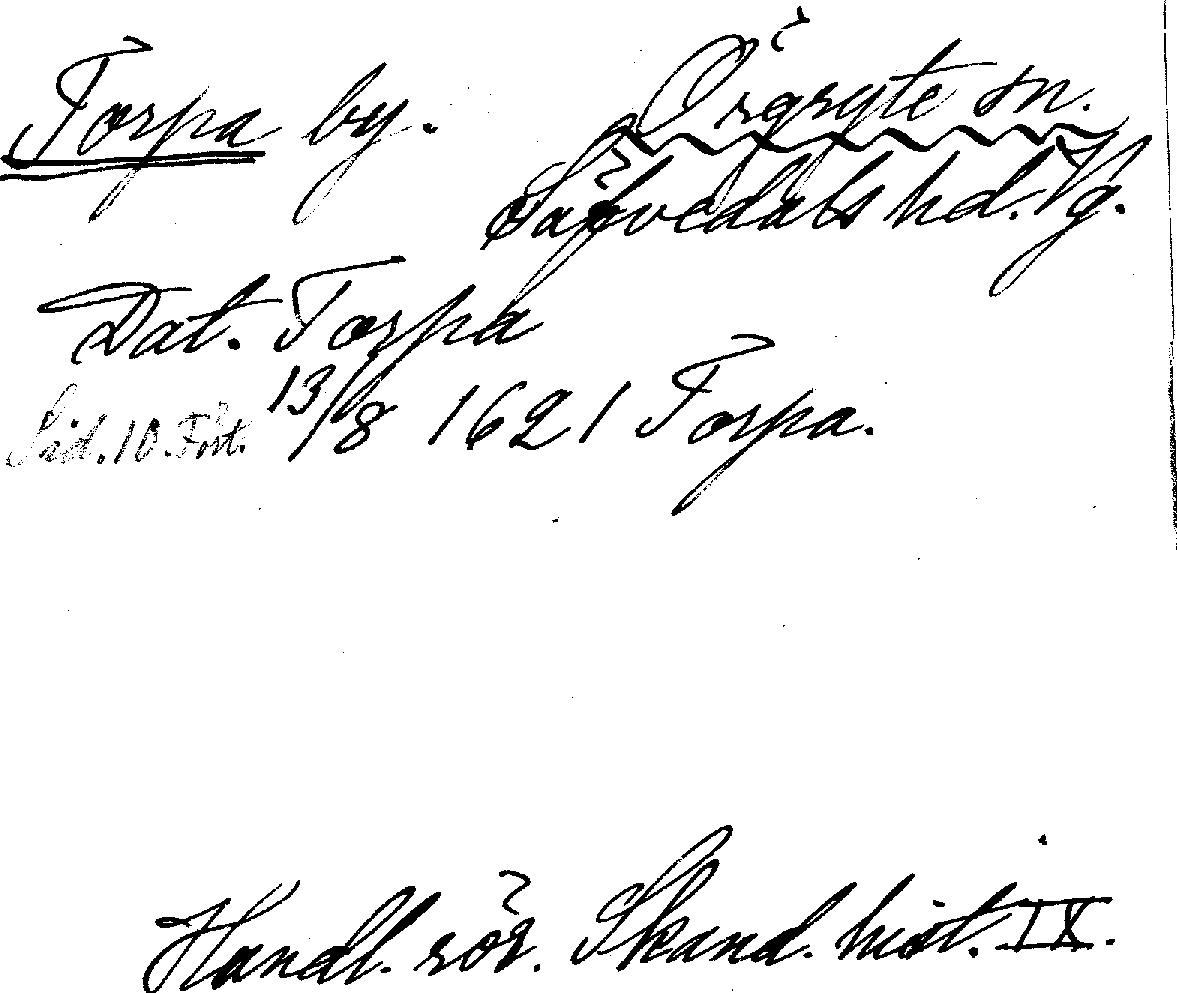 Torpa by. Örgryte sn.
Sävedals hd. Vg.
Dat. Torpa
Sid. 10. Fört. 13/8 1621 Torpa.
Handl. rör. Skand. hist. IX.